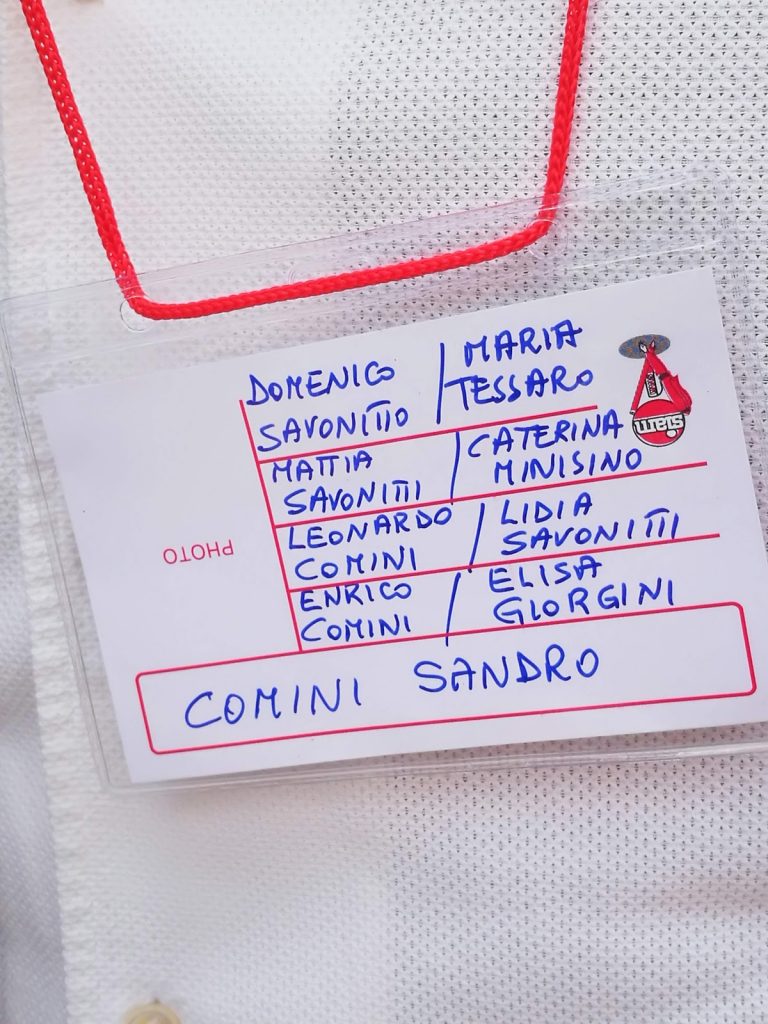 DOMENICO / MARIA
SAVONITTO / TESSARO
MATTIA / CATERINA
SAVONITTI / MINISINO
LEONARDO / LIDIA
COMINI / SAVONITTI
ENRICO / ELISA
COMINI / GIORGINI
COMINI SANDRO
PHOTO
siam